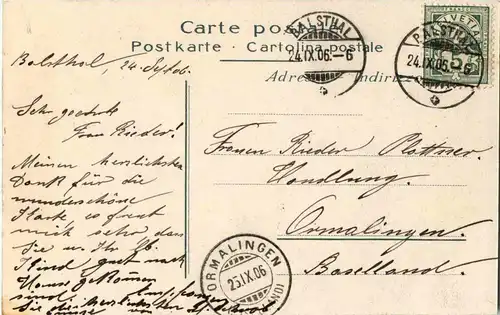 Carte postale
Postkarte - Cartolina postale
Adresse Indirizzo
BALSTHAL
24.IX.06.-6
BALSTHAL
24.IX.06.-6
HELVETIA
5
Balsthal, 24. Sept. 06.
Sehr geehrte
Frau Rieder!
Meinen herzlichsten
Dank für die
wunderschöne
Karte, es freut
mich sehr dass
Sie u. Ihr lb.
Kind gut nach
Hause gekommen
sind. Empfangen
Sie die herzlichsten
Grüsse von
Frauen Rieder Plattner.
Handlung.
Ormalingen.
Baselland.
ORMALINGEN
25.IX.06